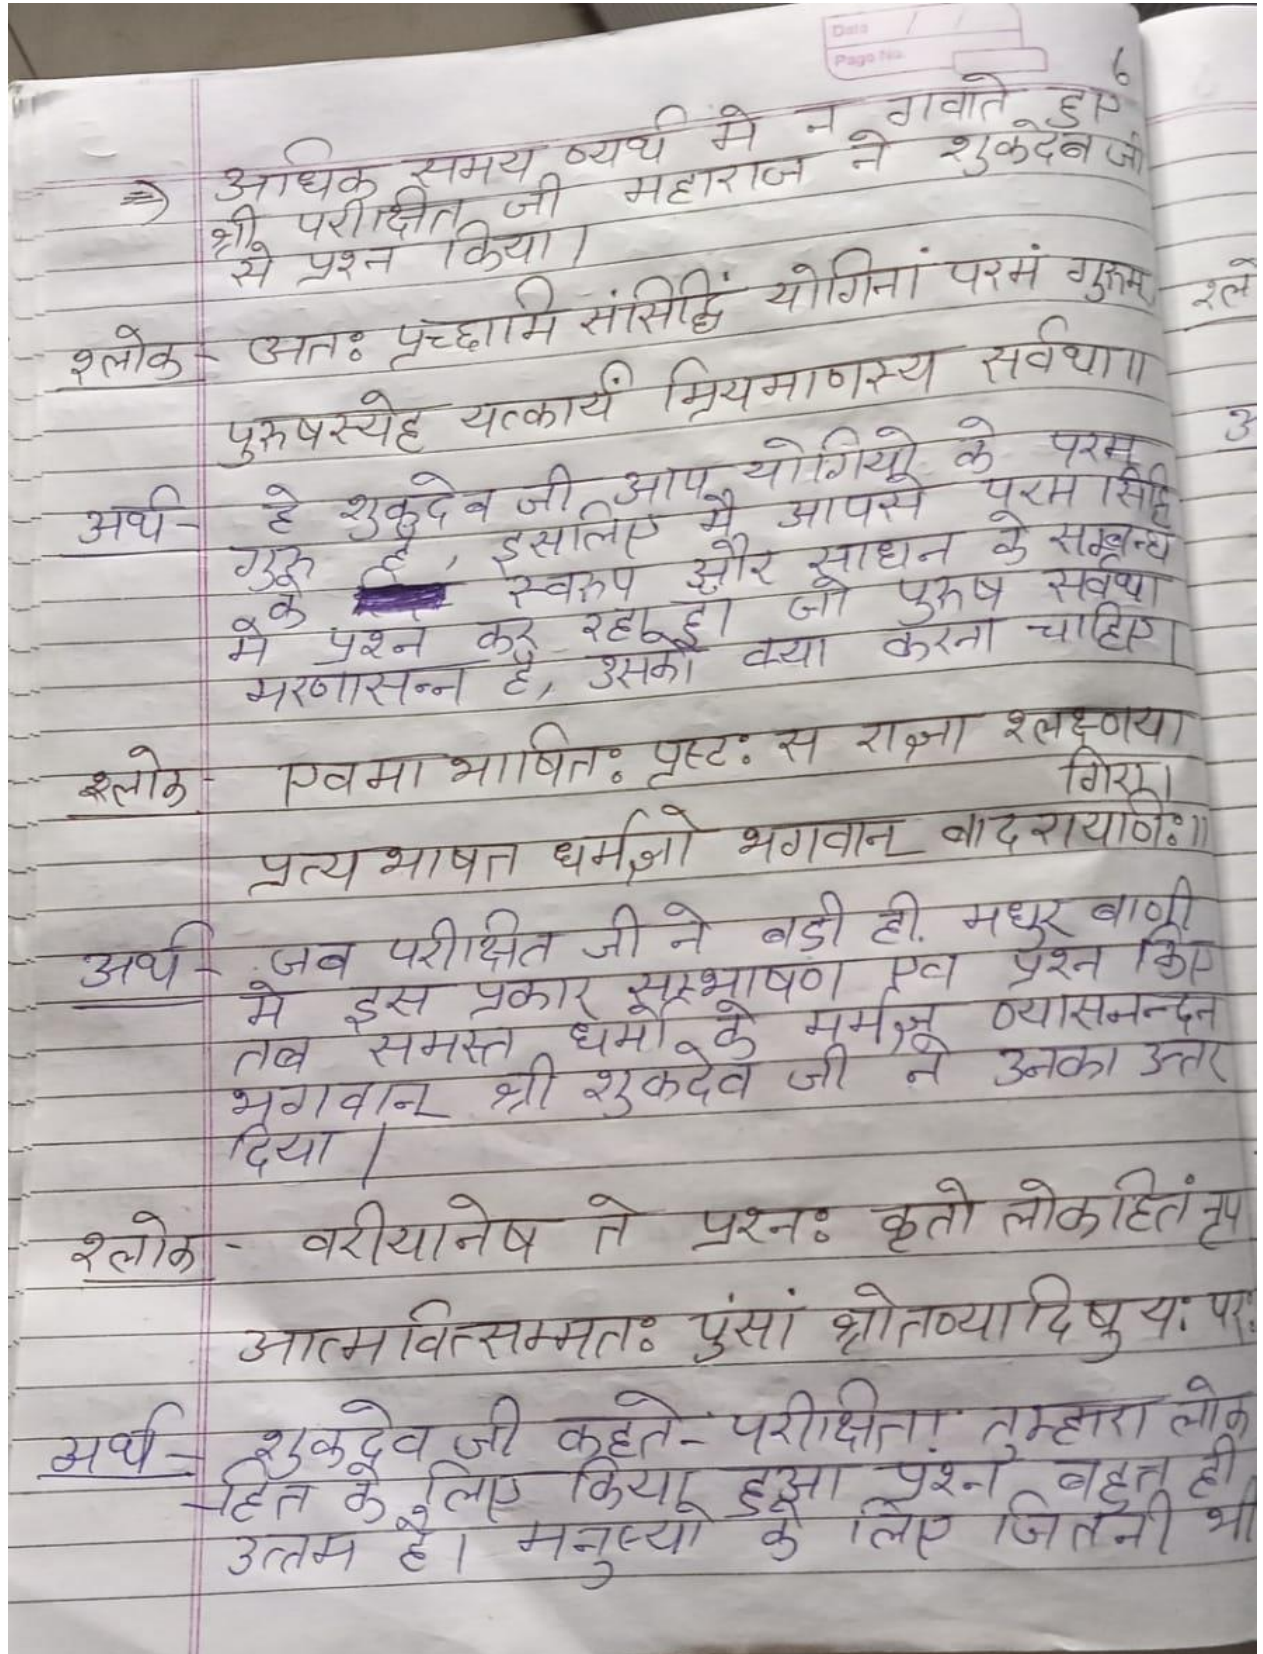 Data / /
Page No.
6
⇒ अधिक समय व्यर्थ मे न गवाते हुए
श्री परीक्षित जी महाराज ने शुकदेव जी
से प्रश्न किया।
श्लोक - अतः प्रच्छामि संसिद्धिं योगिनां परमं गुरुम
पुरुषस्येह यत्कार्यं म्रियमाणस्य सर्वथा॥
अर्थ - हे शुकदेव जी आप योगियो के परम
गुरु है, इसलिए मै आपसे परम सिद्धि
के स्वरुप और साधन के सम्बन्ध
मे प्रश्न कर रहा हू। जो पुरुष सर्वथा
मरणासन्न है, उसको क्या करना चाहिए।
श्लोक - एवमाभाषितः प्रस्टः स राज्ञा श्लक्ष्णया
गिरा।
प्रत्यभाषत धर्मज्ञो भगवान् बादरायणिः॥
अर्थ - जब परीक्षित जी ने बडी ही मधुर बाणी
मे इस प्रकार सम्भाषण एव प्रश्न किए
तब समस्त धर्मो के मर्मज्ञ व्यासनन्दन
भगवान् श्री शुकदेव जी ने उनका उत्तर
दिया।
श्लोक - वरीयानेष ते प्रश्नः कृतो लोकहितं नृप
आत्मवित्सम्मतः पुंसां श्रोतव्यादिषु यः परः
अर्थ - शुकदेव जी कहते - परीक्षित! तुम्हारा लोक
-हित के लिए किया हुआ प्रश्न बहुत ही
उत्तम है। मनुष्यो के लिए जितनी भी
श्लो
अ